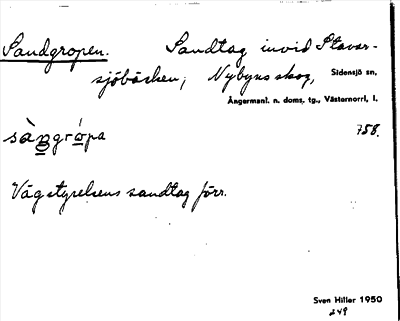 Sandgropen. Sandtag invid Stavar-
sjöbäcken; Nybyns skog, Sidensjö sn,
Ångermanl. n. doms. tg., Västernorrl. l.
sàŋgrópa 758.
Vägstyrelsens sandtag förr.
Sven Hiller 1950
249